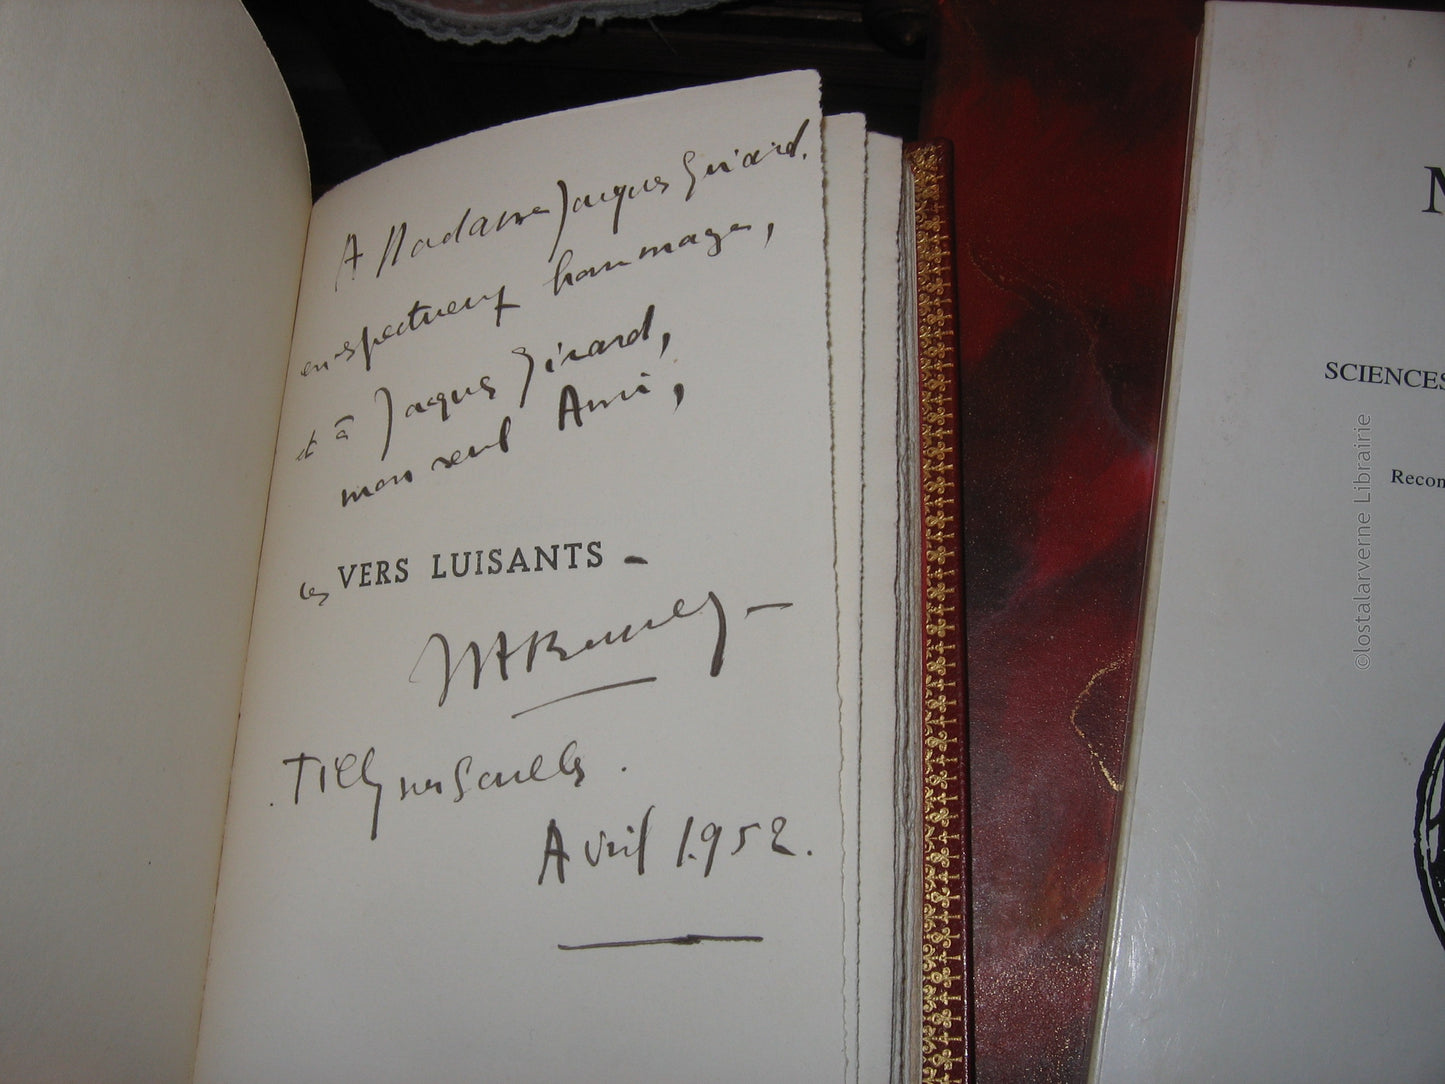 A Madame Jacques Girard.
en respectueux hommages,
et à Jacques Girard,
mon seul Ami,
les VERS LUISANTS -
Tilly sur Seulles.
Avril 1.952.
M
SCIENCES
Recon
©lostalarverne Librairie